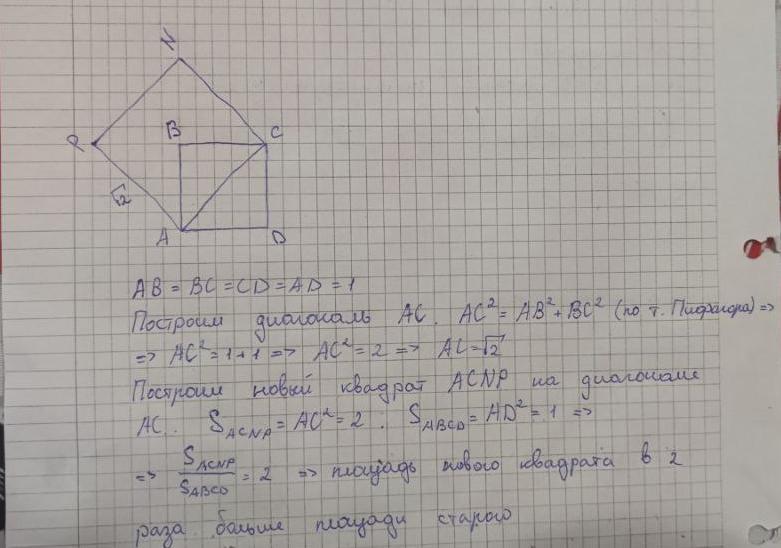 N
P
B
C
√2
A
D
AB = BC = CD = AD = 1
Построим диагональ AC. AC² = AB² + BC² (по т. Пифагора) =>
=> AC² = 1+1 => AC² = 2 => AC = √2
Построим новый квадрат ACNP на диагонале
AC. S_ACNP = AC² = 2. S_ABCD = AD² = 1 =>
=> S_ACNP / S_ABCD = 2 => площадь нового квадрата в 2
раза больше площади старого